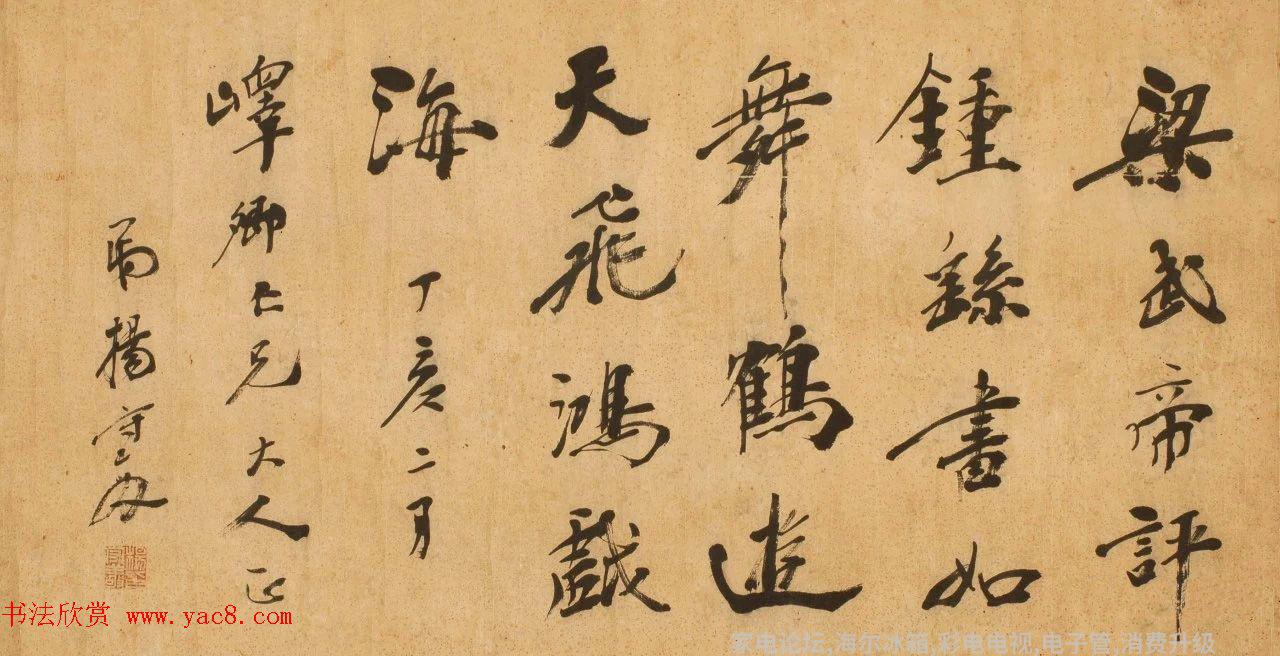 梁武帝評
鍾繇書如
舞鶴遊
天飛鴻戲
海 丁亥二月
嶧卿仁兄大人正
楊守敬
书法欣赏 www.yac8.com
家电论坛,海尔冰箱,彩电电视,电子管,消费升级